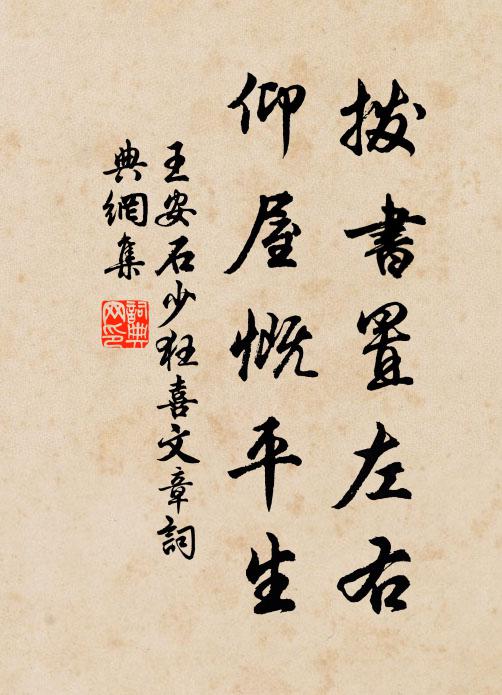 拨書置左右
仰屋慨平生
王安石少狂喜文章詞
典網集
詞典
网印